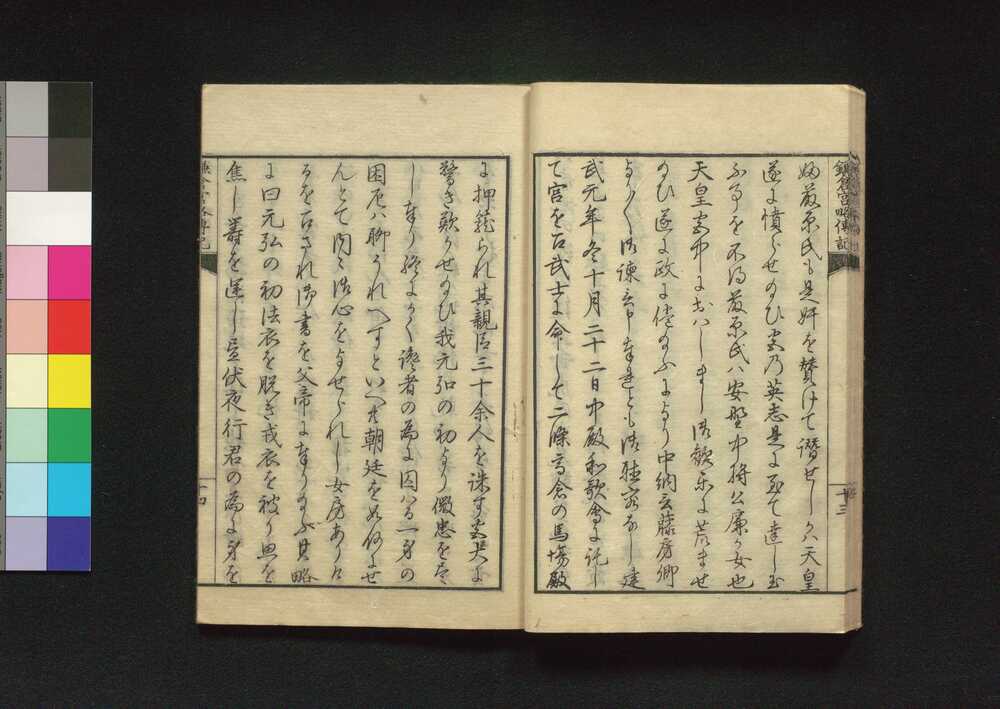 鎌倉宮略傳記
十三
婦藤原氏も是奸を賛けて譖せしかハ天皇
遂に憤らせのひ宮乃英志是よ至て達し玉
ふ事を不得藤原氏ハ安野中将公廉の女也
天皇宮中に出ハしまし流歓楽に荒ませ
のひ遂に政に倦のふにより中納言藤房卿
より〱御諫言申奉れとも御聴容なし建
武元年冬十月二十二日中殿和歌會に託し
て宮を召武士に命して二條高倉の馬場殿
に押籠られ其親臣三十余人を誅す宮大に
驚き歎かせのひ我元弘の初より微忠を尽
し奉り終にかく讒者の為に囚ハる一身の
困厄ハ聊うれへすといへ共朝廷を如何せ
んとて内々御心をよせられし女房ありけ
るを召され御書を父帝に奉りのふ其略
に曰元弘の初法衣を脱き戎衣を被り思を
焦し籌を運し昼伏夜行君の為に身を
鎌倉宮略傳記
十四